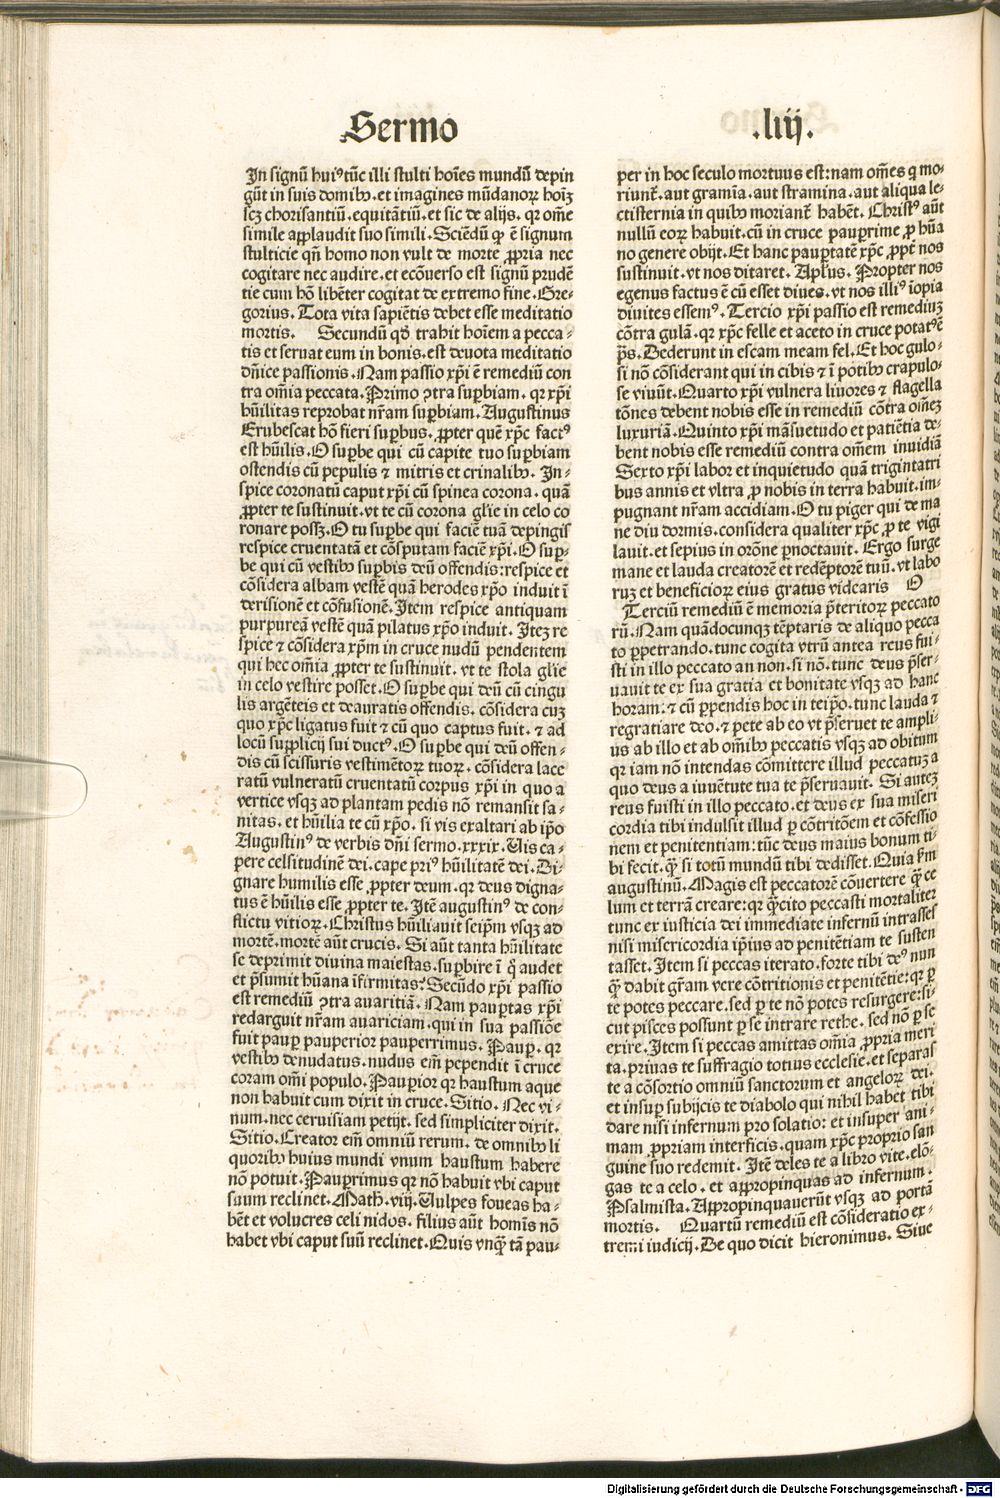 Sermo .liij.
In signũ huiꝰ tũc illi stulti hoĩes mundũ depin
gũt in suis domibꝰ. et imagines mũdanoꝝ hoĩꝫ
scꝫ chorisantiũ. equitãtiũ. et sic de alijs. qꝛ om̃e
simile applaudit suo simili. Sciẽdũ ꝙ ẽ signum
stulticie qñ homo non vult de morte ꝓpria nec
cogitare nec audire. et ecõuerso est signũ prudẽ
tie cum hõ libẽter cogitat de extremo fine. Gre⸗
gorius. Tota vita sapiẽtis debet esse meditatio
mortis. Secundũ qð trahit hoĩem a pecca⸗
tis et seruat eum in bonis. est deuota meditatio
dñice passionis. Nam passio xp̃i ẽ remediũ con
tra om̃ia peccata. Primo ꝯtra suꝑbiam. qꝛ xp̃i
hũilitas reprobat nr̃am suꝑbiam. Augustinus
Erubescat hõ fieri suꝑbus. ꝓpter quẽ xp̃c factꝰ
est hũilis. O suꝑbe qui cũ capite tuo suꝑbiam
ostendis cũ pepulis ⁊ mitris et crinalibꝰ. In⸗
spice coronatũ caput xp̃i cũ spinea corona. quã
ꝓpter te sustinuit. vt te cũ corona glĩe in celo co
ronare possꝫ. O tu suꝑbe qui faciẽ tuã depingis
respice cruentatã et cõsputam faciẽ xp̃i. O suꝑ⸗
be qui cũ vestibꝰ suꝑbis deũ offendis: respice et
cõsidera albam vestẽ quã herodes xp̃o induit ĩ
derisionẽ et cõfusionẽ. Item respice antiquam
purpureã vestẽ quã pilatus xp̃o induit. Iteꝫ re
spice ⁊ cõsidera xp̃m in cruce nudũ pendentem
qui hec om̃ia ꝓpter te sustinuit. vt te stola glĩe
in celo vestire posset. O suꝑbe qui deũ cũ cingu
lis argẽteis et deauratis offendis. cõsidera cuꝫ
quo xp̃c ligatus fuit ⁊ cũ quo captus fuit. ⁊ ad
locũ supplicij sui ductꝰ. O suꝑbe qui deũ offen⸗
dis cũ scissuris vestimẽtoꝝ tuoꝝ. cõsidera lace
ratũ vulneratũ cruentatũ corpus xp̃i in quo a
vertice vsqꝫ ad plantam pedis nõ remansit sa⸗
nitas. et hũilia te cũ xp̃o. si vis exaltari ab ip̃o
Augustinꝰ de verbis dñi sermo. xxxix. Uis ca⸗
pere celsitudinẽ dei. cape priꝰ hũilitatẽ dei. Di⸗
gnare humilis esse ꝓpter deum. qꝛ deus digna⸗
tus ẽ hũilis esse ꝓpter te. Itẽ augustinꝰ de con⸗
flictu vitioꝝ. Christus hũiliauit seip̃m vsqꝫ ad
mortẽ. mortẽ aũt crucis. Si aũt tanta hũilitate
se deprimit diuina maiestas. suꝑbire ĩ q̃ audet
et p̃sumit hũana ĩfirmitas? Secũdo xp̃i passio
est remediũ ꝯtra avaritiã. Nam pauꝑtas xp̃i
redarguit nr̃am auariciam. qui in sua passiõe
fuit pauꝑ pauperior pauperrimus. Pauꝑ. qꝛ
vestibꝰ denudatus. nudus em̃ pependit ĩ cruce
coram om̃i populo. Pauꝑior qꝛ haustum aque
non habuit cum dixit in cruce. Sitio. Nec vi⸗
num. nec ceruisiam petijt. sed simpliciter dixit.
Sitio. Creator em̃ omniũ rerum. de omnibꝰ li
quoribꝰ huius mundi vnum haustum habere
nõ potuit. Pauꝑrimus qꝛ nõ habuit vbi caput
suum reclinet. Math. viij. Uulpes foueas ha⸗
bẽt et volucres celi nidos. filius aũt homĩs nõ
habet vbi caput suũ reclinet. Quis vnq̃ tã pau⸗
per in hoc seculo mortuus est: nam om̃es q̃ mo⸗
riunt̃. aut gramĩa. aut stramina. aut aliqua le⸗
ctisternia in quibꝰ moriant̃ habẽt. Christꝰ aũt
nullũ eoꝝ habuit. cũ in cruce pauꝑrime ꝓ hũa
no genere obijt. Et hanc pauꝑtatẽ xp̃c ꝓpt̃ nos
sustinuit. vt nos ditaret. Apl̃us. Propter nos
egenus factus ẽ cũ esset diues. vt nos illiꝰ ĩopia
diuites essemꝰ. Tercio xp̃i passio est remediuꝫ
cõtra gulã. qꝛ xp̃c felle et aceto in cruce potatꝰ ẽ
p̃s. Dederunt in escam meam fel. Et hoc gulo⸗
si nõ cõsiderant qui in cibis ⁊ ĩ potibꝰ crapulo⸗
se viuũt. Quarto xp̃i vulnera liuores ⁊ flagella
tõnes debent nobis esse in remediũ cõtra om̃eꝫ
luxuriã. Quinto xp̃i mãsuetudo et patiẽtia de⸗
bent nobis esse remediũ contra om̃em inuidiã
Sexto xp̃i labor et inquietudo quã trigintatri
bus annis et vltra ꝓ nobis in terra habuit. im⸗
pugnant nr̃am accidiam. O tu piger qui de ma
ne diu dormis. considera qualiter xp̃c ꝓ te vigi
lauit. et sepius in orõne ꝑnoctauit. Ergo surge
mane et lauda creatorẽ et redẽptorẽ tuũ. vt labo
ruꝫ et beneficioꝝ eius gratus videaris O
Terciũ remediũ ẽ memoria p̃teritoꝝ peccato
rũ. Nam quãdocunqꝫ tẽptaris de aliquo pecca
to ꝑpetrando. tunc cogita vtrũ antea reus fui⸗
sti in illo peccato an non. si nõ. tunc deus p̃ser⸗
uauit te ex sua gratia et bonitate vsqꝫ ad hanc
horam: ⁊ cũ ꝑpendis hoc in teip̃o. tunc lauda ⁊
regratiare deo. ⁊ pete ab eo vt p̃seruet te ampli⸗
us ab illo et ab om̃ibꝰ peccatis vsqꝫ ad obitum
qꝛ iam nõ intendas cõmittere illud peccatuꝫ a
quo deus a iuuẽtute tua te p̃seruauit. Si auteꝫ
reus fuisti in illo peccato. et deus ex sua miseri
cordia tibi indulsit illud ꝑ cõtritõem et cõfessio
nem et penitentiam: tũc deus maius bonum ti⸗
bi fecit. q̃ si totũ mundũ tibi dedisset. Quia ẜm
augustinũ. Magis est peccatorẽ cõuertere q̃ ce
lum et terrã creare: qꝛ q̃cito peccasti mortaliter
tunc ex iusticia dei immediate infernũ intrasses
nisi misericordia ip̃ius ad penitẽtiam te susten
tasset. Item si peccas iterato. forte tibi deꝰ nun
q̃ dabit gr̃am vere cõtritionis et penitẽtie: qꝛ ꝑ
te potes peccare. sed ꝑ te nõ potes resurgere: si⸗
cut pisces possunt ꝑ se intrare rethe. sed nõ ꝑ se
exire. Item si peccas amittas om̃ia ꝓpria meri
ta. priuas te suffragio totius ecclesie. et separas
te a cõsortio omniũ sanctorum et angeloꝝ dei.
et insuꝑ subijcis te diabolo qui nihil habet tibi
dare nisi infernum pro solatio: et insuper ani⸗
mam ꝓpriam interficis. quam xp̃c proprio san
guine suo redemit. Itẽ deles te a libro vite. elõ⸗
gas te a celo. et appropinquas ad infernum.
Psalmista. Appropinquauerũt vsqꝫ ad portã
mortis. Quartũ remediũ est cõsideratio ex⸗
tremi iudicij. De quo dicit hieronimus. Siue
Digitalisierung gefördert durch die Deutsche Forschungsgemeinschaft - DFG